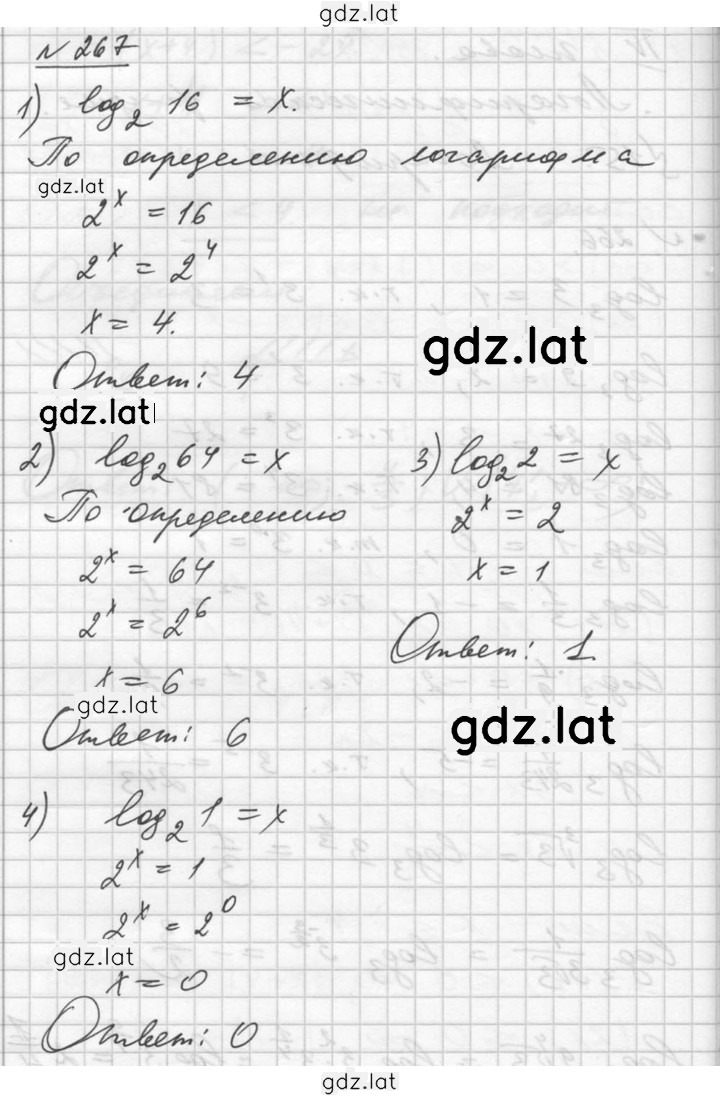 gdz.lat
№ 267
1) log₂ 16 = x.
По определению логарифма
gdz.lat
2ˣ = 16
2ˣ = 2⁴
x = 4.
gdz.lat
Ответ: 4
gdz.lat
2) log₂ 64 = x
По определению
2ˣ = 64
2ˣ = 2⁶
x = 6
gdz.lat
Ответ: 6
3) log₂ 2 = x
2ˣ = 2
x = 1
Ответ: 1.
gdz.lat
4) log₂ 1 = x
2ˣ = 1
2ˣ = 2⁰
gdz.lat
x = 0
Ответ: 0
gdz.lat